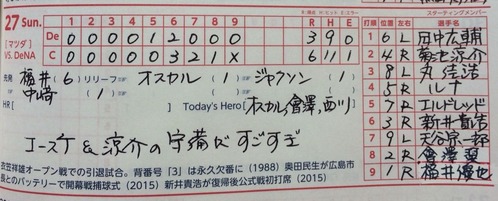 27 Sun.
[マツダ]
VS. DeNA
1 2 3 4 5 6 7 8 9 R H E
De 0 0 0 0 1 2 0 0 0 3 9 0
C 0 0 0 0 0 3 2 1 X 6 11 1
先発 福井(6) リリーフ オスカル(1) ジャクソン(1)
中崎(1)
HR[ ] Today's Hero[オスカル,會澤,西川]
コースケ&涼介の守備がすごすぎ
衣笠祥雄オープン戦での引退試合。背番号「3」は永久欠番に(1988)奥田民生が広島市
長とのバッテリーで開幕戦捕球式(2015)新井貴浩が復帰後公式戦初打席(2015)
スターティングメンバー
打順 位置 左右 選手名
1 6 L 田中広輔
2 4 R 菊池涼介
3 8 L 丸佳浩
4 5 R ルナ
5 7 R エルドレッド
6 3 R 新井貴浩
7 9 L 天谷宗一郎
8 2 R 會澤翼
9 1 R 福井優也